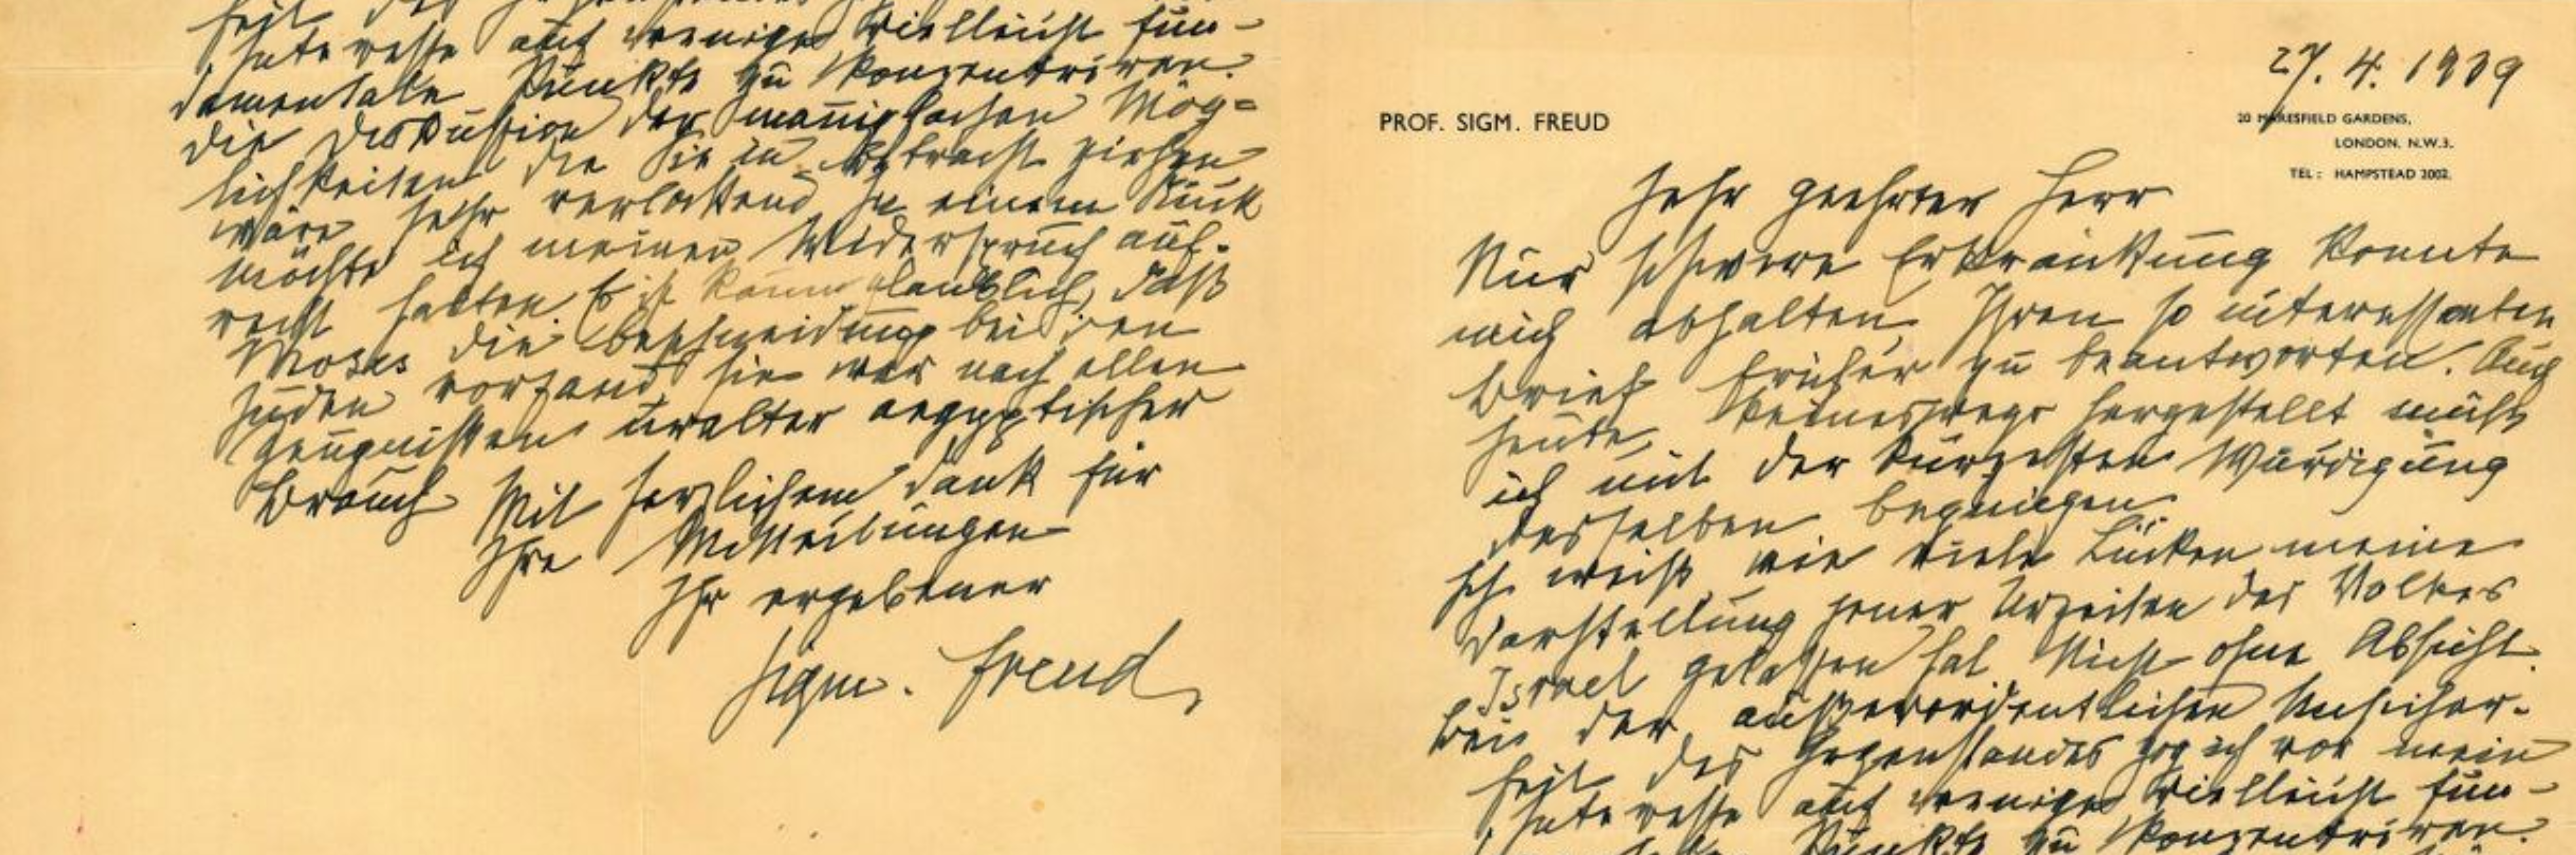 Interesse auf wenige vielleicht fun-
damentale Punkte zu konzentriren.
Die Diskussion der mannigfachen Mög=
lichkeiten die Sie in Betracht ziehen
wäre sehr verlockend. In einem Stück
möchte ich meinen Widerspruch auf-
recht halten. Es ist kaum glaublich, daß
Moses die Beschneidung bei den
Juden vorfand, sie war nach allen
Zeugnissen uralter aegyptischer
Brauch. Mit herzlichem Dank für
Ihre Mitteilungen
Ihr ergebener
Sigm. Freud
27.4.1939
PROF. SIGM. FREUD
20 MARESFIELD GARDENS,
LONDON. N.W.3.
TEL: HAMPSTEAD 2002.
Sehr geehrter Herr
Nur schwere Erkrankung konnte
mich abhalten Ihren so interessanten
Brief früher zu beantworten. Auch
heute keineswegs hergestellt muß
ich mit der kürzesten Würdigung
desselben begnügen
Ich weiß wie viele Lücken meine
Darstellung jener Urzeiten des Volkes
Israel gelassen hat. Nicht ohne Absicht.
Bei der außerordentlichen Unsicher-
heit des Gegenstandes zog ich vor mein
Interesse auf wenige vielleicht fun-
Punkte zu konzentriren.